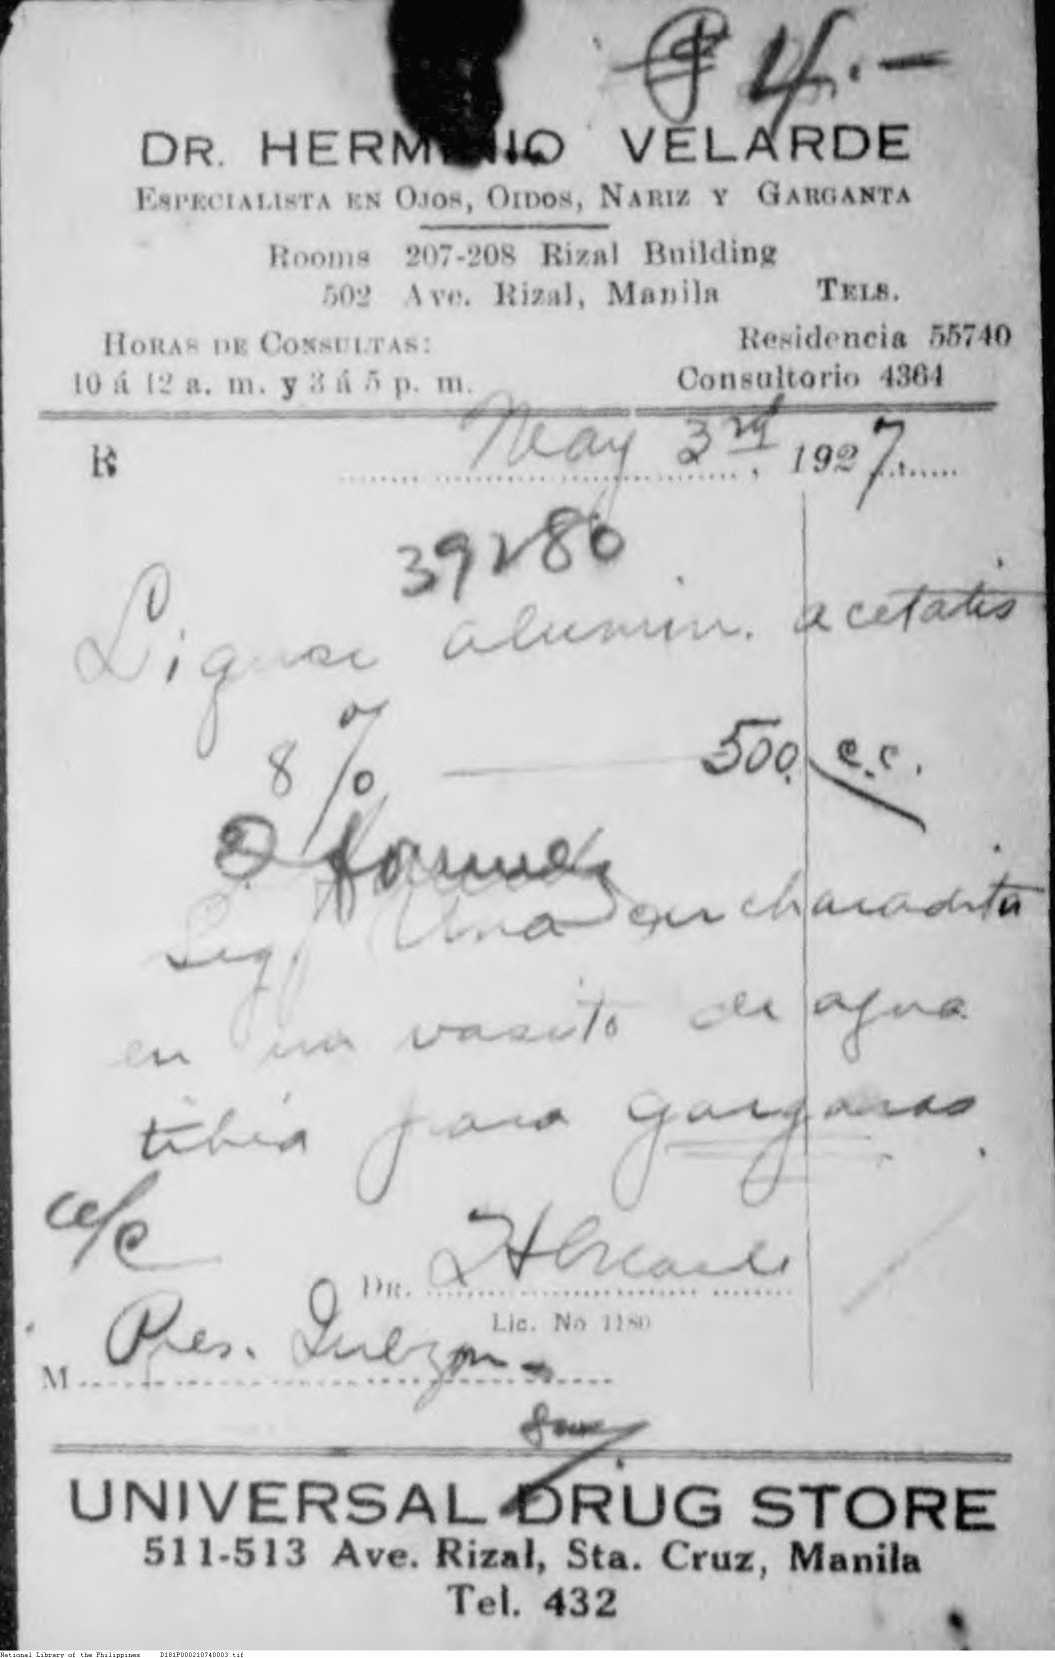 ₱ 4.-
DR. HERMINIO VELARDE
ESPECIALISTA EN OJOS, OIDOS, NARIZ Y GARGANTA
Rooms 207-208 Rizal Building
502 Ave. Rizal, Manila TELS.
HORAS DE CONSULTAS: Residencia 55740
10 á 12 a. m. y 3 á 5 p. m. Consultorio 4364
℞ May 3rd, 1927
39280
Liquor alumin. acetatis
8 % — 500 c.c.
Sig. Una cucharadita
en un vasito de agua
tibia para gargaras.
a/c
DR. HVelarde
Lic. No 1180
M Pres. Quezon -
UNIVERSAL DRUG STORE
511-513 Ave. Rizal, Sta. Cruz, Manila
Tel. 432
National Library of the Philippines D181P000210740003.tif